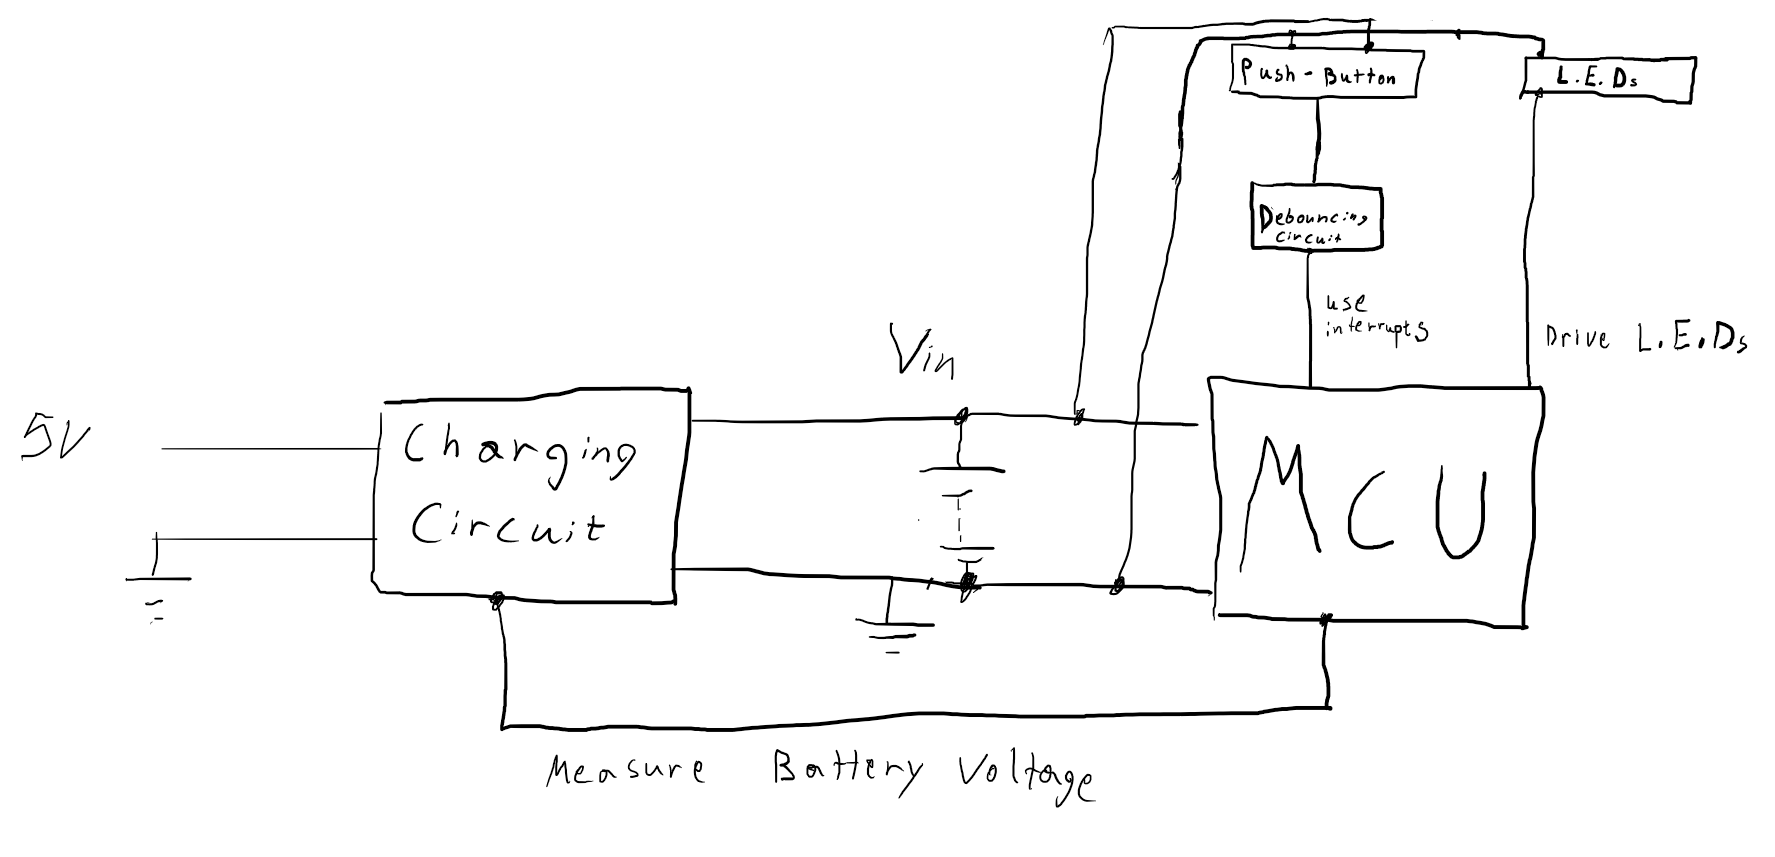 Push-Button
L.E.Ds
Debouncing
circuit
use
interrupts
Drive L.E.Ds
Vin
5V
Charging
Circuit
MCU
Measure Battery Voltage